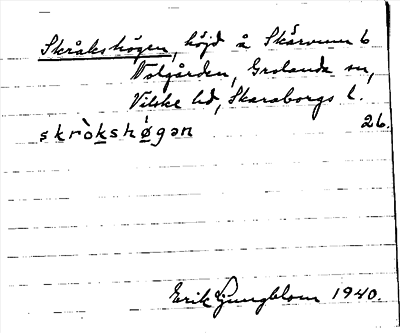 Skråkshögen, höjd å Skårvum 6
Västgården, Grolanda sn,
Vilske hd, Skaraborgs l.
skròkshǿgən 26.
Erik Ljungblom 1940.